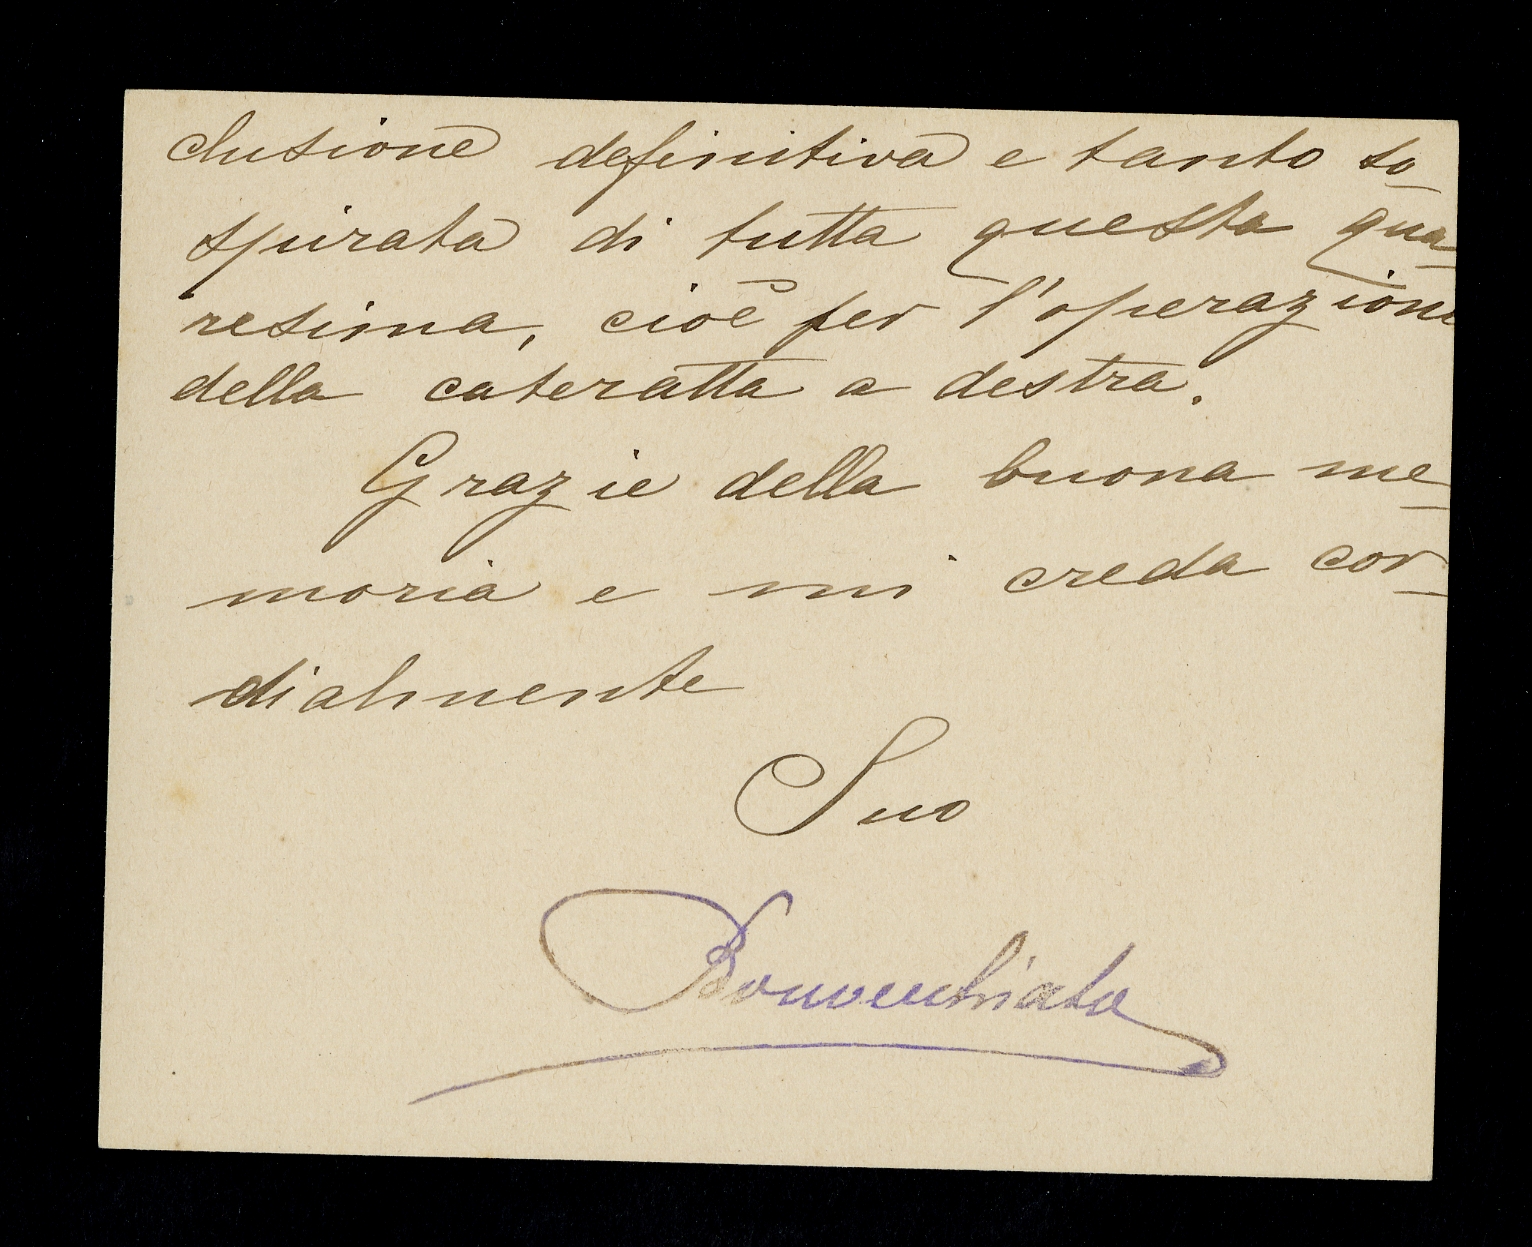 clusione definitiva e tanto so-
spirata di tutta questa qua-
resima, cioè per l'operazione
della cateratta a destra.
Grazie della buona me-
moria e mi creda cor-
dialmente
Suo
Bonvecchiato